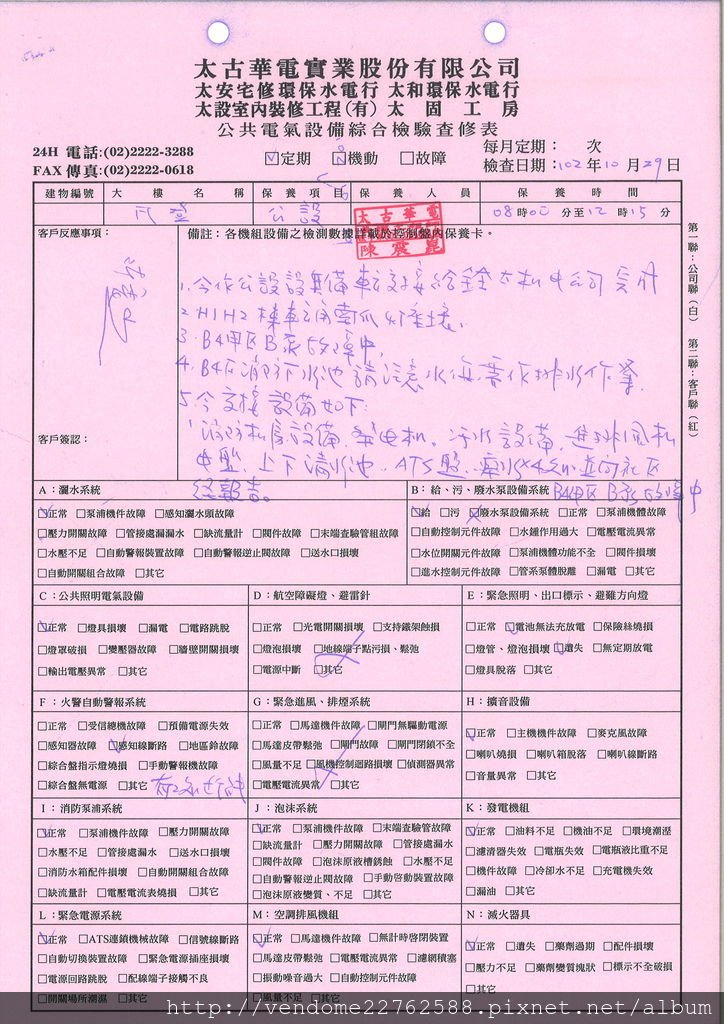 太古華電實業股份有限公司
太安宅修環保水電行 太和環保水電行
太設室內裝修工程(有) 太固工房
公共電氣設備綜合檢驗查修表
24H 電話:(02)2222-3288
FAX 傳真:(02)2222-0618
☑定期 ☑機動 □故障
每月定期： 次
檢查日期：102年10月29日
建物編號 大樓名稱 保養項目 保養人員 保養時間
公設 08時00分至12時15分
太古華電
陳震崑
客戶反應事項：
備註：各機組設備之檢測數據詳載於控制盤內保養卡。
1.今作公設設備
2.H1H2棟
3.B4甲區B泵故障中.
4.B4區消防水池請注意水位需作排水作業.
5.今交接設備如下:
消防機房設備.發電機。污水設備.進排風機
電盤.上下清水池.ATS盤.
經報告。
客戶簽認：
第一聯：公司聯(白) 第二聯：客戶聯(紅)
A：灑水系統
☑正常 □泵浦機件故障 □感知灑水頭故障
□壓力開關故障 □管接處漏漏水 □缺流量計 □閥件故障 □末端查驗管組故障
□水壓不足 □自動警報裝置故障 □自動警報逆止閥故障 □送水口損壞
□自動開關組合故障 □其它
B：給、污、廢水泵設備系統 B4甲區B泵故障中
☑給 □污 ☑廢水泵設備系統 □正常 □泵浦機體故障
□自動控制元件故障 □水錘作用過大 □電壓電流異常
□水位開關元件故障 □泵浦機體功能不全 □閥件損壞
□進水控制元件故障 □管系泵體脫離 □漏電 □其它
C：公共照明電氣設備
☑正常 □燈具損壞 □漏電 □電路跳脫
□燈罩破損 □變壓器故障 □牆壁開關損壞
□輸出電壓異常 □其它
D：航空障礙燈、避雷針
□正常 □光電開關損壞 □支持鐵架蝕損
□燈泡損壞 □地線端子點污損、鬆弛
□電源中斷 □其它
E：緊急照明、出口標示、避難方向燈
□正常 ☑電池無法充放電 □保險絲燒損
□燈管、燈泡損壞 ☑遺失 □無定期放電
□燈具脫落 □其它
F：火警自動警報系統
□正常 □受信總機故障 □預備電源失效
□感知器故障 ☑感知線斷路 □地區鈴故障
□綜合盤指示燈燒損 □手動警報機故障
□綜合盤無電源 □其它
G：緊急進風、排煙系統
□正常 □馬達機件故障 □閘門無驅動電源
□馬達皮帶鬆弛 □閘門故障 □閘門閉鎖不全
□風量不足 □風機控制迴路損壞 □偵測器異常
□電壓電流異常 □其它
H：擴音設備
☑正常 □主機機件故障 □麥克風故障
□喇叭燒損 □喇叭箱脫落 □喇叭線斷路
□音量異常 □其它
I：消防泵浦系統
☑正常 □泵浦機件故障 □壓力開關故障
□水壓不足 □管接處漏水 □送水口損壞
□消防水箱配件損壞 □自動開關組合故障
□缺流量計 □電壓電流表燒損 □其它
J：泡沫系統
☑正常 □泵浦機件故障 □末端查驗管故障
□缺流量計 □壓力開關故障 □管接處漏水
□閥件故障 □泡沫原液槽銹蝕 □水壓不足
□自動警報逆止閥故障 □手動啓動裝置故障
□泡沫原液變質、不足 □其它
K：發電機組
☑正常 □油料不足 □機油不足 □環境潮溼
□濾清器失效 □電瓶失效 □電瓶液比重不足
□機件故障 □冷卻水不足 □充電機失效
□漏油 □其它
L：緊急電源系統
☑正常 □ATS連鎖機械故障 □信號線斷路
□自動切換裝置故障 □緊急電源插座損壞
□電源回路跳脫 □配線端子接觸不良
□開關場所潮濕 □其它
M：空調排風機組
☑正常 □馬達機件故障 □無計時啓閉裝置
□馬達皮帶鬆弛 □電壓電流異常 □濾網積塞
□振動噪音過大 □自動控制元件故障
□風量不足 □其它
N：滅火器具
☑正常 □遺失 □藥劑過期 □配件損壞
□壓力不足 □藥劑變質塊狀 □標示不全破損
□其它
http://vendome22762588.pixnet.net/album